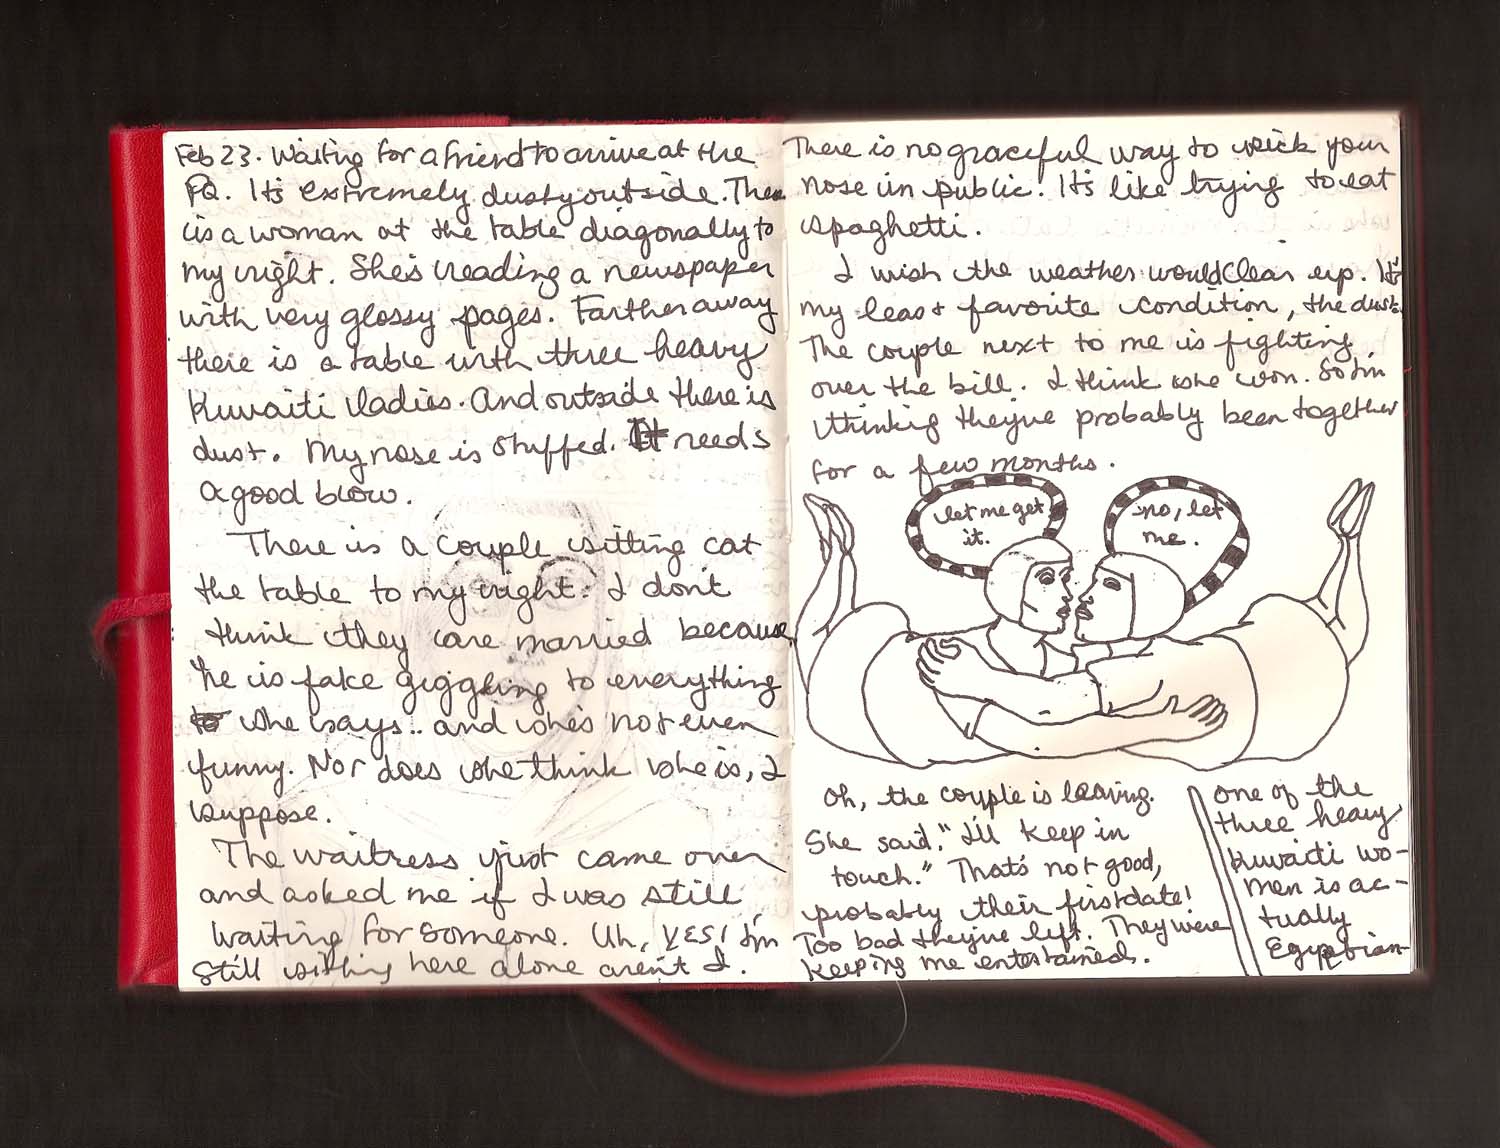 Feb 23. Waiting for a friend to arrive at the
PQ. It's extremely dusty outside. There
is a woman at the table diagonally to
my right. She's reading a newspaper
with very glossy pages. Farther away
there is a table with three heavy
Kuwaiti ladies. And outside there is
dust. My nose is stuffed. It needs
a good blow.
There is a couple sitting at
the table to my right. I don't
think they are married because
he is fake giggling to everything
she says.. and she's not even
funny. Nor does she think she is, I
suppose.
The waitress just came over
and asked me if I was still
waiting for someone. Uh, YES! I'm
still sitting here alone aren't I.
There is no graceful way to pick your
nose in public. It's like trying to eat
spaghetti.
I wish the weather would clear up. It's
my least favorite condition, the dust.
The couple next to me is fighting
over the bill. I think she won. So I'm
thinking they've probably been together
for a few months.
let me get
it.
no, let
me.
Oh, the couple is leaving.
She said, "I'll keep in
touch." That's not good,
probably their first date!
Too bad they've left. They were
keeping me entertained.
One of the
three heavy
Kuwaiti wo-
men is ac-
tually
Egyptian